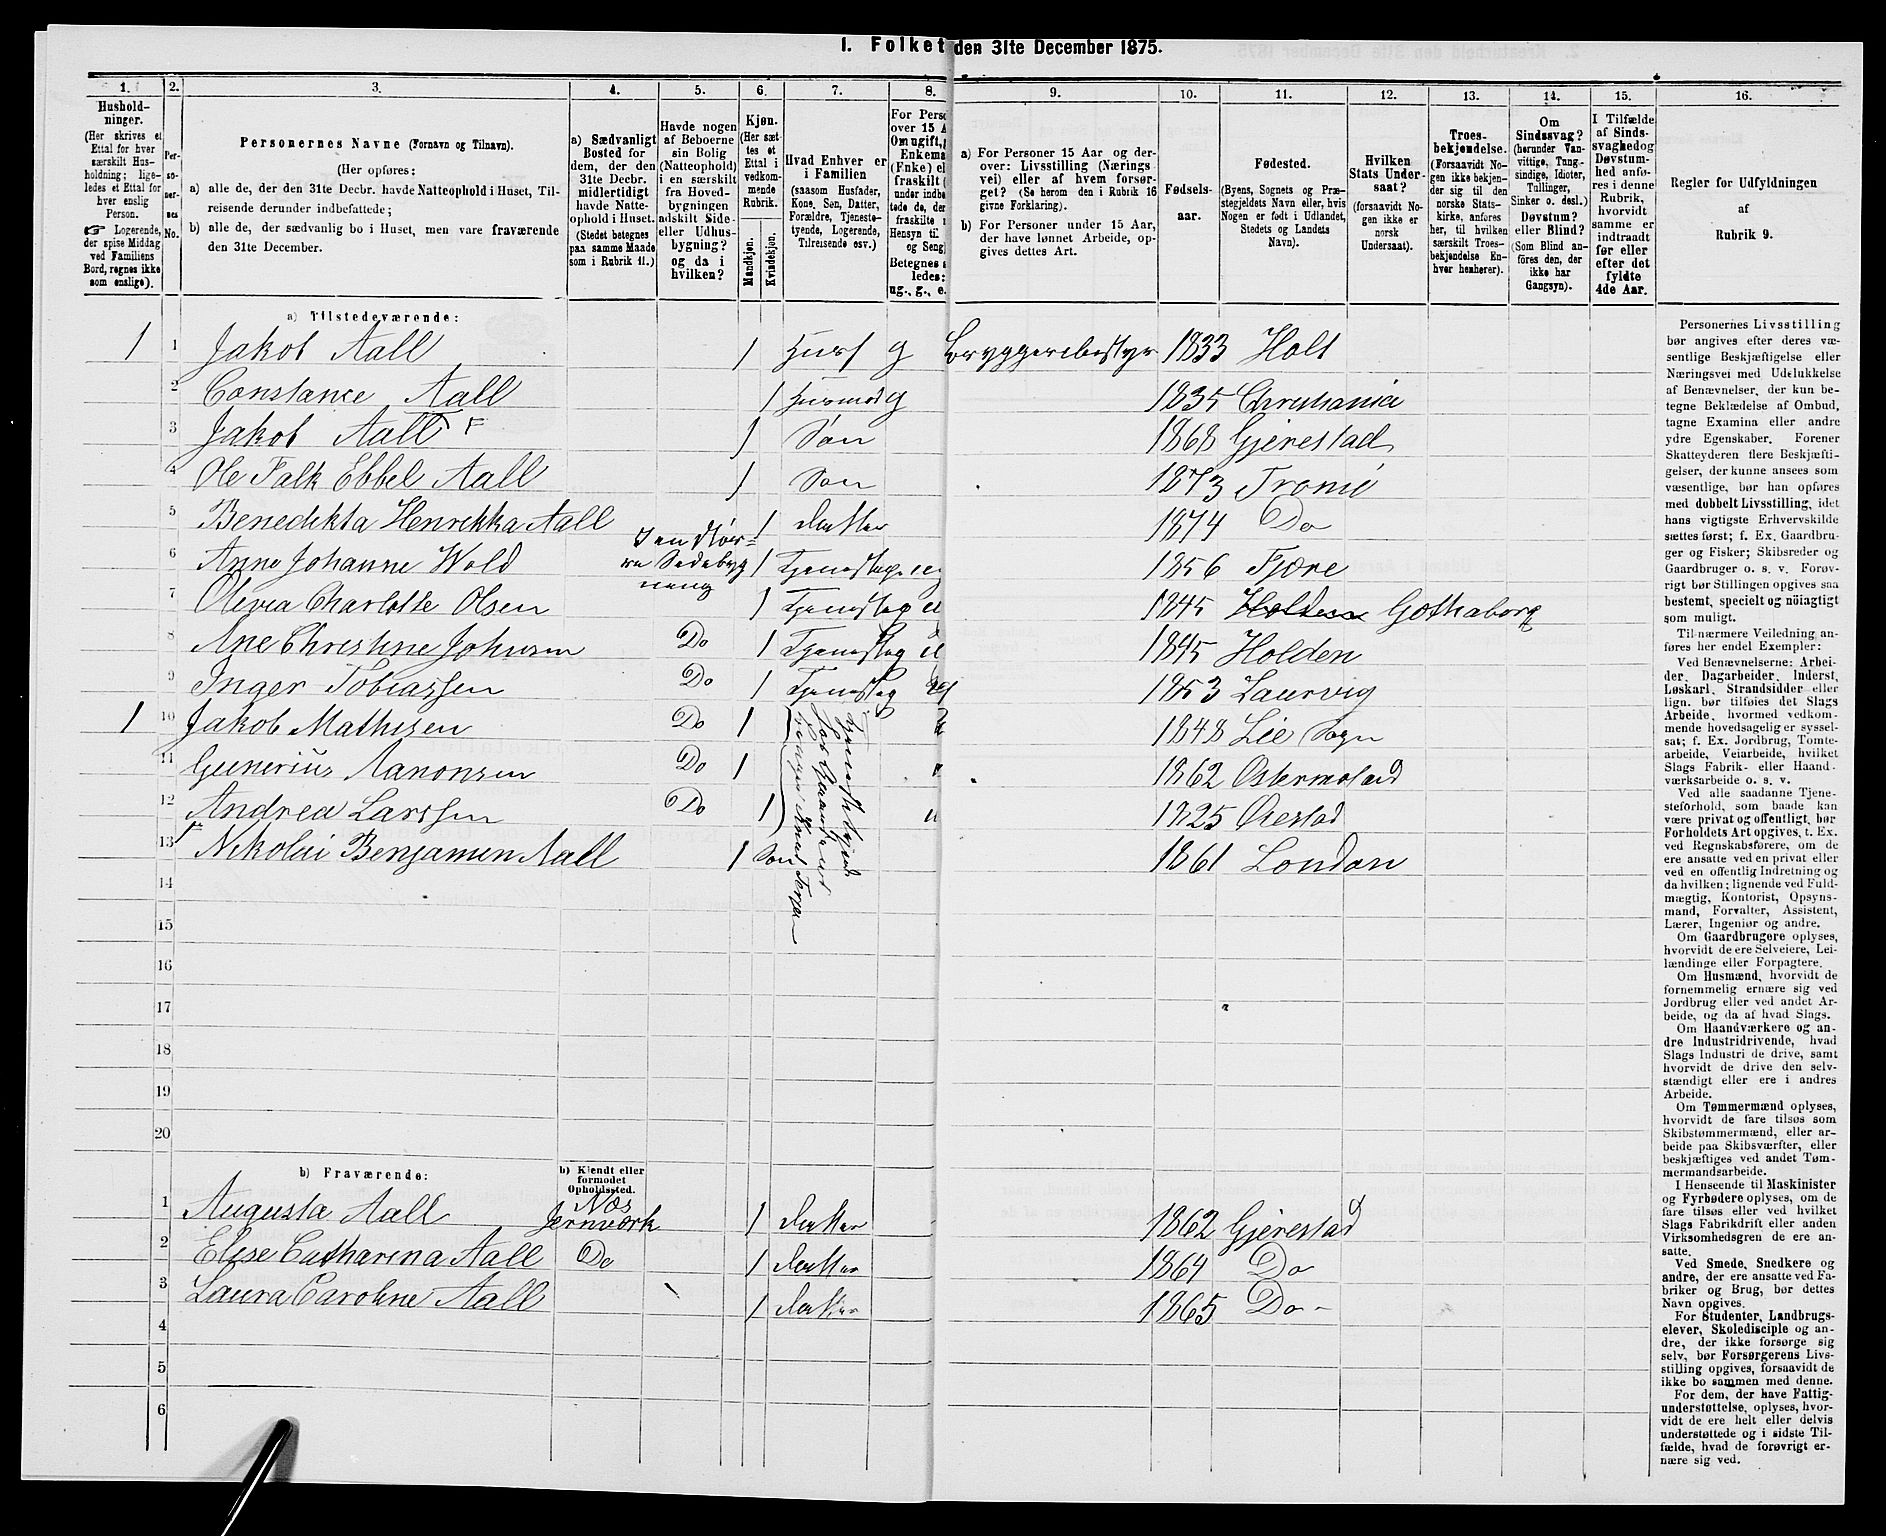 I. Folket den 31te December 1875.
1. 2. 3. 4. 5. 6. 7. 8. 9. 10. 11. 12. 13. 14. 15. 16.
Hushold-
ninger.
(Her skrives et
Ettal for hver
særskilt Hus-
holdning; lige-
ledes et Ettal for
hver enslig
Person.
☞ Logerende,
der spise Middag
ved Familiens
Bord, regnes ikke
som enslige).
Per-
so-
ner-
nes
No.
Personernes Navne (Fornavn og Tilnavn).
(Her opføres:
a) alle de, der den 31te Decbr. havde Natteophold i Huset, Til-
reisende derunder indbefattede;
b) alle de, der sædvanlig bo i Huset, men vare fraværende
den 31te December.
a) Sædvanligt
Bosted for
dem, der den
31te Decbr.
midlertidigt
havde Natte-
ophold i Huset.
(Stedet betegnes
paa samme Maade
som i Rubrik 11.)
Havde nogen
af Beboerne
sin Bolig
(Natteophold)
i en særskilt
fra Hoved-
bygningen
adskilt Side-
eller Udhus-
bygning?
og da i
hvilken?
Kjøn.
(Her sæt-
tes et
Ettal i
vedkom-
mende
Rubrik.
Mandkjøn.
Kvindekjøn.
Hvad Enhver er
i Familien
(saasom Husfader,
Kone, Søn, Datter,
Forældre, Tjeneste-
tyende, Logerende,
Tilreisende osv.)
For Perso
over 15 A
Om ugift,
Enkema
(Enke) el
fraskilt
under indbe
tede de, der
fraskilte
Hensyn til
og Seng
Betegnes s
ledes:
ug., g., e.
a) For Personer 15 Aar og der-
over: Livsstilling (Nærings
vei) eller af hvem forsør-
get? (Se herom den i Rubrik 16
givne Forklaring).
b) For Personer under 15 Aar,
der have lønnet Arbeide, op-
gives dettes Art.
Fødsels-
aar.
Fødested.
(Byens, Sognets og Præ-
stegjeldets Navn eller, hvis
Nogen er født i Udlandet,
Stedets og Landets
Navn).
Hvilken
Stats Under-
saat?
(forsaavidt No-
gen ikke er
norsk
Undersaat).
Troes-
bekjendelse.
(Forsaavidt No-
gen ikke bekjen-
der sig til den
norske Stats-
kirke, anføres
her, til hvilken
særskilt Troes-
bekjendelse En-
hver henhører).
Om
Sindssvag?
(herunder Van-
vittige, Tung-
sindige, Idioter,
Tullinger,
Sinker o. desl.)
Døvstum?
eller Blind?
(Som Blind an-
føres den, der
ikke har
Gangsyn).
I Tilfælde
af Sinds-
svaghed og
Døvstum-
hed anfø-
res i denne
Rubrik,
hvorvidt
samme er
indtraadt
før eller
efter det
fyldte
4de Aar.
Regler for Udfyldningen
af
Rubrik 9.
a) Tilstedeværende:
1 1 Jakob Aall 1 Husf g Bryggeribestyr 1833 Holt
2 Constance Aall 1 Husmod g 1835 Christiania
3 Jakob Aall F 1 Søn 1868 Gjerestad
4 Ole Falk Ebbel Aall 1 Søn 1873 Tromø
5 Benedikta Henrikka Aall 1 Datter 1874 Do
6 Anne Johanne Wold I en Stør-
re Sidebyg
ning 1 Tjenestepige ug 1856 Fjære
7 Olivia Charlotte Olsen 1 Tjenestep 1845 Holden Gothaborg
8 Ane Christine Johnsen Do 1 Tjenestep 1845 Holden
9 Inger Tobiassen Do 1 Tjenestep ug 1853 Laurvig
1 10 Jakob Mathisen Do 1 1848 Lie Sogn
11 Gunerius Aanonsen Do 1 1862 Østermoland
12 Andrea Larssen Do 1 1825 Øiestad
Tjenestetyende
hos Gaardbruger
13 F Nikolai Benjamin Aall 1 Søn 1861 London
14
15
16
17
18
19
20
b) Fraværende:
b) Kjendt eller
formodet
Opholdssted.
1 Augusta Aall Næs
Jernværk 1 Datter 1862 Gjerestad
2 Elise Catharina Aall Do 1 Datter 1864 Do
3 Laura Caroline Aall 1 Datter 1865 Do -
4
5
6
Personernes Livsstilling
bør angives efter deres væ-
sentlige Beskjæftigelse eller
Næringsvei med Udelukkelse
af Benævnelser, der kun be-
tegne Beklædelse af Ombud,
tagne Examina eller andre
ydre Egenskaber. Forener
Skatteyderen flere Beskjæfti-
gelser, der kunne ansees som
væsentlige, bør han opføres
med dobbelt Livsstilling, idet
hans vigtigste Erhvervskilde
sættes først; f. Ex. Gaardbru-
ger og Fisker; Skibsreder og
Gaardbruger o. s. v. Forøv-
rigt bør Stillingen opgives saa
bestemt, specielt og nöiagtigt
som muligt.
Til nærmere Veiledning an-
føres her endel Exempler:
Ved Benævnelserne: Arbei-
der, Dagarbeider, Inderst,
Løskarl, Strandsidder eller
lign. bør tilføies det Slags
Arbeide, hvormed vedkom-
mende hovedsagelig er syssel-
sat; f. Ex. Jordbrug, Tomte-
arbeide, Veiarbeide, hvilket
Slags Fabrik- eller Haand-
værksarbeide o. s. v.
Ved alle saadanne Tjene-
steforhold, som baade kan
være privat og offentligt, bør
Forholdets Art opgives, t. Ex.
ved Regnskabsførere, om de
ere ansatte ved en privat eller
ved en offentlig Indretning og
da hvilken; lignende ved Fuld-
mægtig, Kontorist, Opsyns-
mand, Forvalter, Assistent,
Lærer, Ingeniør og andre.
Om Gaardbrugere oplyses,
hvorvidt de ere Selveiere, Lei-
lændinge eller Forpagtere.
Om Husmænd, hvorvidt de
fornemmelig ernære sig ved
Jordbrug eller ved andet Ar-
beide, og da af hvad Slags.
Om Haandværkere og an-
dre Industridrivende, hvad
Slags Industri de drive, samt
hvorvidt de drive den selv-
stændigt eller ere i andres
Arbeide.
Om Tømmermænd oplyses,
hvorvidt de fare tilsøs som
Skibstømmermænd, eller ar-
beide paa Skibsværfter, eller
beskjæftiges ved andet Tøm-
mermandsarbeide.
I Henseende til Maskinister
og Fyrbødere oplyses, om de
fare tilsøs eller ved hvilket
Slags Fabrikdrift eller anden
Virksomhedsgren de ere an-
satte.
Ved Smede, Snedkere og
andre, der ere ansatte ved Fa-
briker og Brug, bør dettes
Navn opgives.
For Studenter, Landbrugs-
elever, Skoledisciple og an-
dre, der ikke forsørge sig
selv, bør Forsørgerens Livs-
stilling opgives, forsaavidt de
ikke bo sammen med denne.
For dem, der have Fattig-
understøttelse, oplyses, hvor-
vidt de ere helt eller delvis
understøttede og i sidste Til-
fælde, hvad de forøvrigt er-
nære sig ved.